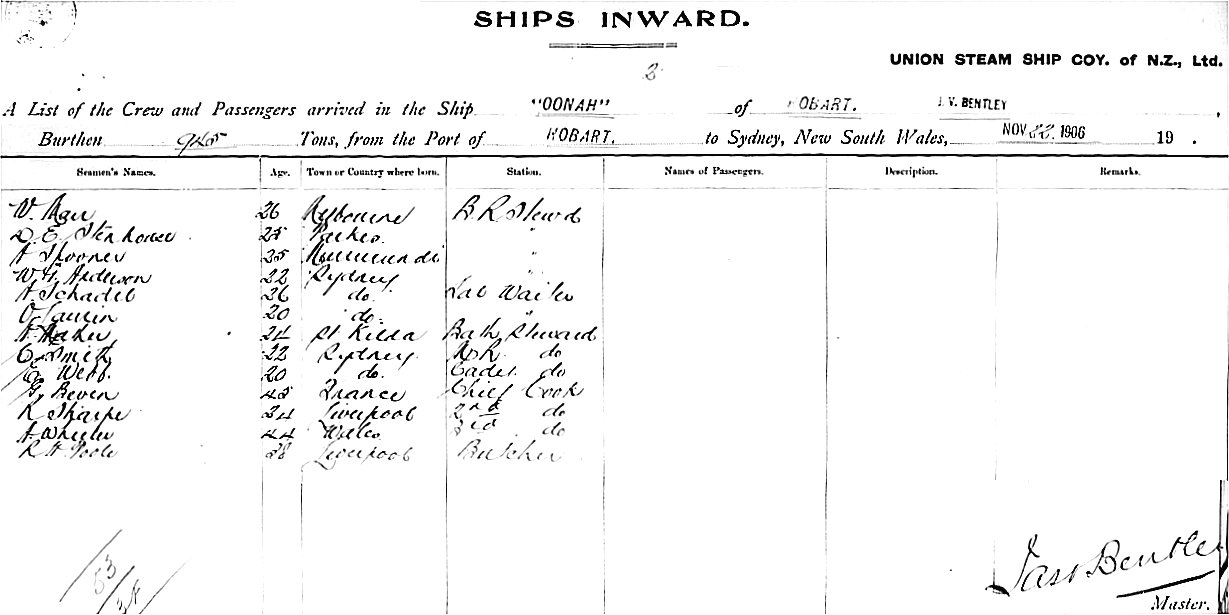 SHIPS INWARD.
UNION STEAM SHIP COY. of N.Z., Ltd.
2
A List of the Crew and Passengers arrived in the Ship "OONAH" of HOBART. J.V. BENTLEY,
Burthen 945 Tons, from the Port of HOBART. to Sydney, New South Wales, NOV 22 1906 19 .
Seamen's Names. Age. Town or Country where born. Station. Names of Passengers. Description. Remarks.
W. 26 Melbourne B.R. Steward
D. E. Stenhouse 25 Parkes "
A Spooner 35 "
W. G. Anderson 22 Sydney "
A Schadel 26 do. Sal Waiter
O 20 do. "
A 24 St Kilda Bath Steward
C. Smith 22 Sydney do
E. Webb. 20 do. Cadet do
G. Beven 45 France Chief Cook
R Sharpe 34 Liverpool 2nd do
A Wheeler 44 Wales 3rd do
R H Poole 28 Liverpool Butcher
53
38
Jas V Bentley
Master.